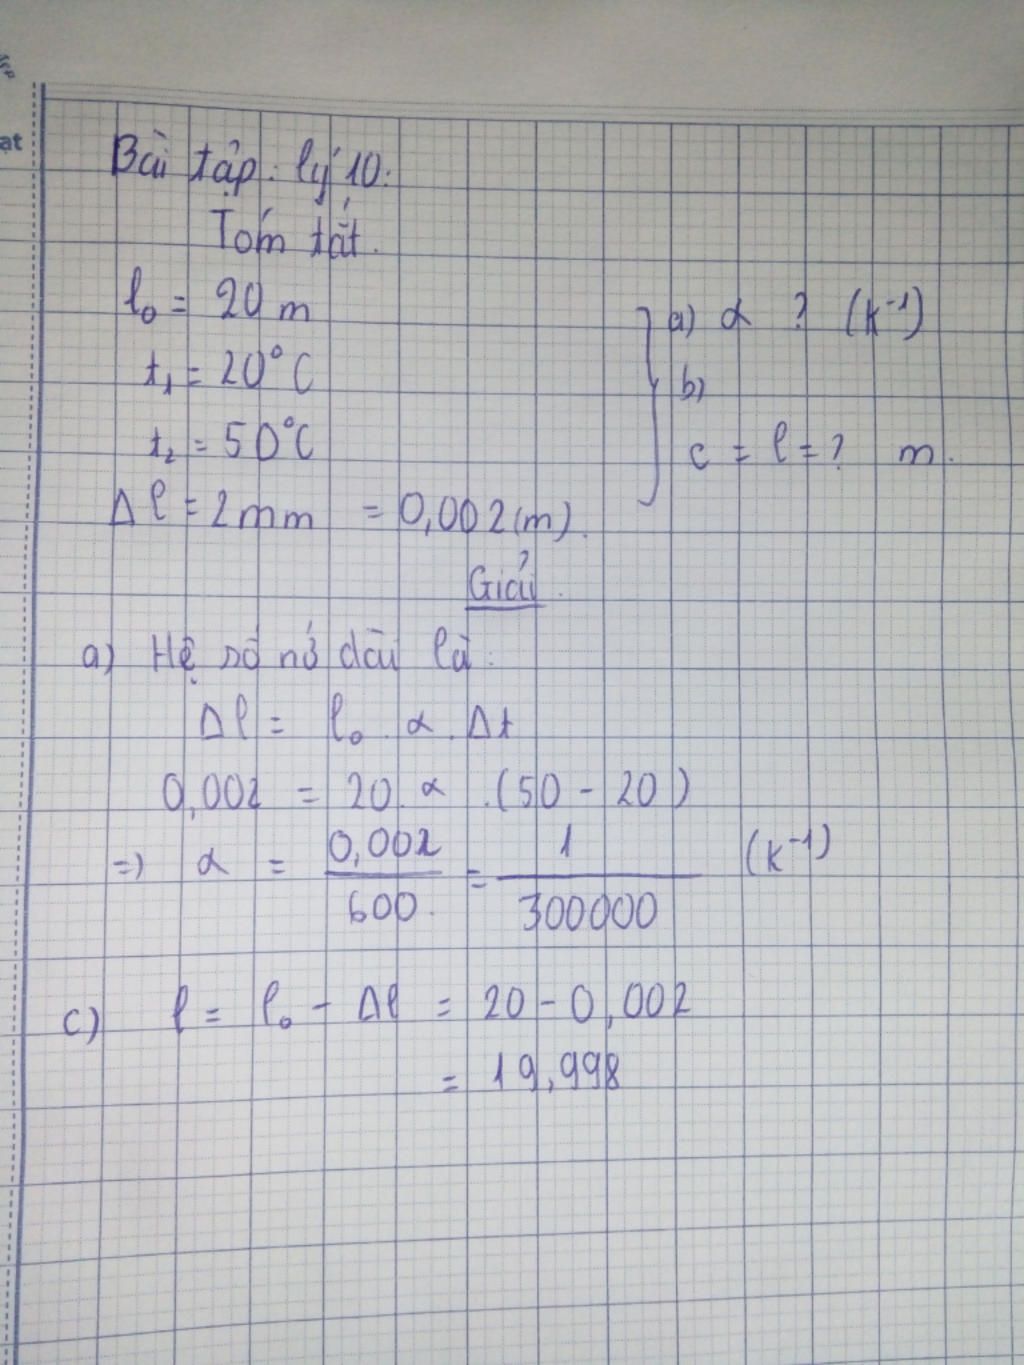 ạt
Bài tập: lý 10:
Tóm tắt.
l₀ = 20 m
t₁ = 20°C
t₂ = 50°C
Δl = 2mm = 0,002(m).
a) α ? (k⁻¹)
b)
c = l = ? m.
Giải.
a) Hệ số nở dài là:
Δl = l₀ . α . Δt
0,002 = 20 . α . (50 - 20)
=) α = 0,002/600 = 1/300000 (k⁻¹)
c) l = l₀ - Δl = 20 - 0,002
= 19,998